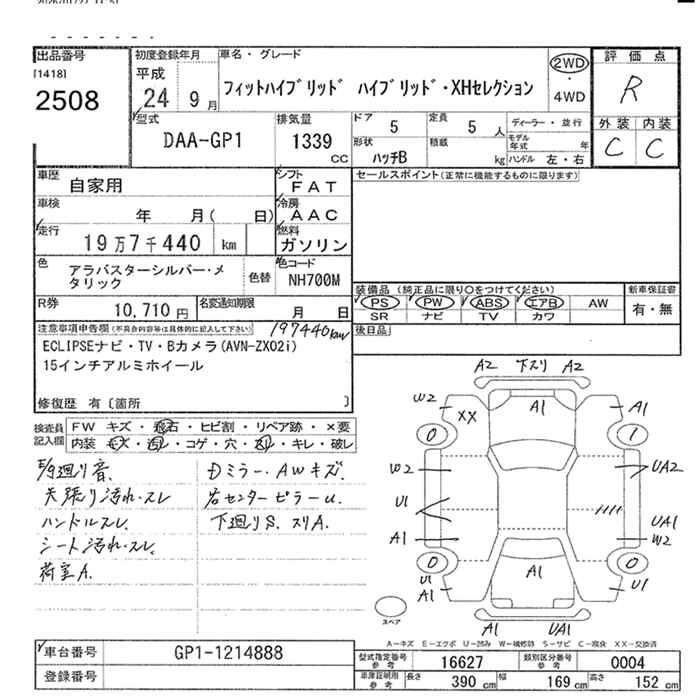 出品番号
[1418]
2508
初度登録年月
平成
24 9 月
車名・グレード
フィットハイブリッド ハイブリッド・XHセレクション
2WD
4WD
評価点
R
外装 内装
C C
型式
DAA-GP1
排気量
1339
CC
ドア
5
定員
5 人
形状
ハッチB
積載
kg
ディーラー・並行
モデル年式 年
ハンドル 左・右
車歴
自家用
シフト
FAT
車検
年 月( 日)
冷房
AAC
走行
19万7千440 km
燃料
ガソリン
色
アラバスターシルバー・メタリック
色替
色コード
NH700M
R券
10,710 円
名変通知期限
月 日
セールスポイント(正常に機能するものに限ります)
装備品(純正品に限り○をつけてください)
PS PW ABS エアB AW
SR ナビ TV カワ
新車保証書
有・無
後日品
注意事項申告欄(不具合内容等は具体的に記入して下さい)
197440km
ECLIPSEナビ・TV・Bカメラ(AVN-ZX02i)
15インチアルミホイール
修復歴 有〔箇所 〕
検査員記入欄
FW キズ・飛石・ヒビ割・リペア跡・×要
内装 キズ・汚レ・コゲ・穴・スレ・キレ・破レ
下廻り音.
天張り汚れ・スレ
ハンドルスレ.
シート汚れ・スレ.
荷室A.
Dミラー・AWキズ.
右センターピラーU.
下廻りS.スリA.
A2 下スリ A2
W2
XX
A1
A1
0
1
W2
UA2
U1
A1
UA1
W2
0
0
U1
A1
A1
U1
スペア
A1 UA1
A－キズ E－エクボ U－凹み W－補修跡 S－サビ C－腐食 XX－交換済
車台番号
GP1-1214888
登録番号
型式指定番号
参考
16627
類別区分番号
参考
0004
車庫証明用
参考
長さ 390 cm 幅 169 cm 高さ 152 cm